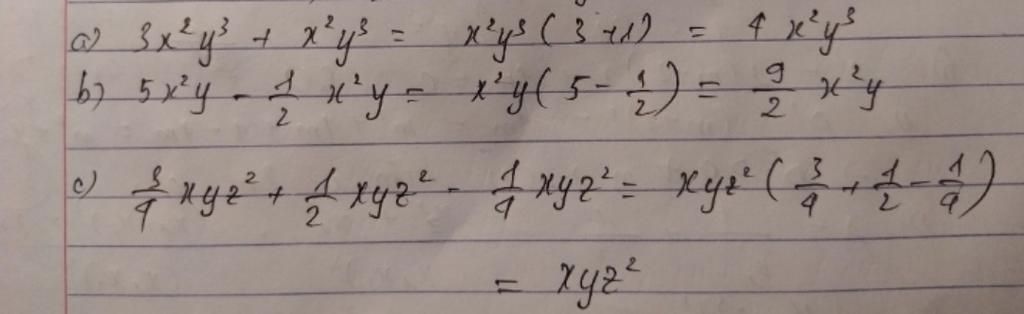 a) 3x²y³ + x²y³ = x²y³ (3+1) = 4 x²y³
b) 5x²y - 1/2 x²y = x²y (5 - 1/2) = 9/2 x²y
c) 3/4 xyz² + 1/2 xyz² - 1/4 xyz² = xyz² (3/4 + 1/2 - 1/4)
= xyz²